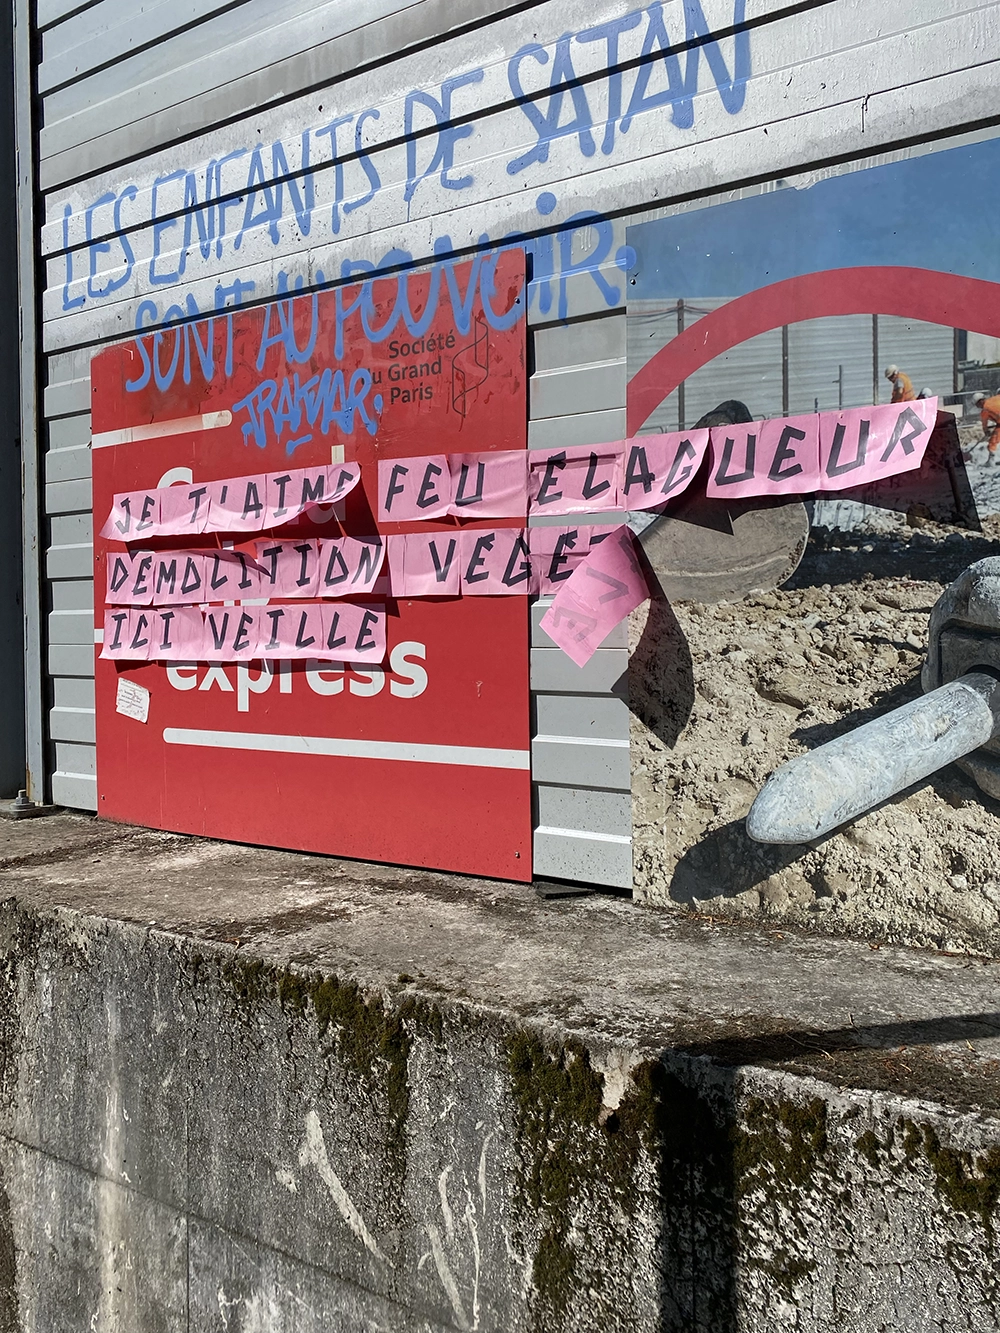 LES ENFANTS DE SATAN
SONT AU POUVOIR.
Société
du Grand
Paris
JE T'AIME FEU ELAGUEUR
DEMOLITION VEGE
ICI VEILLE
express